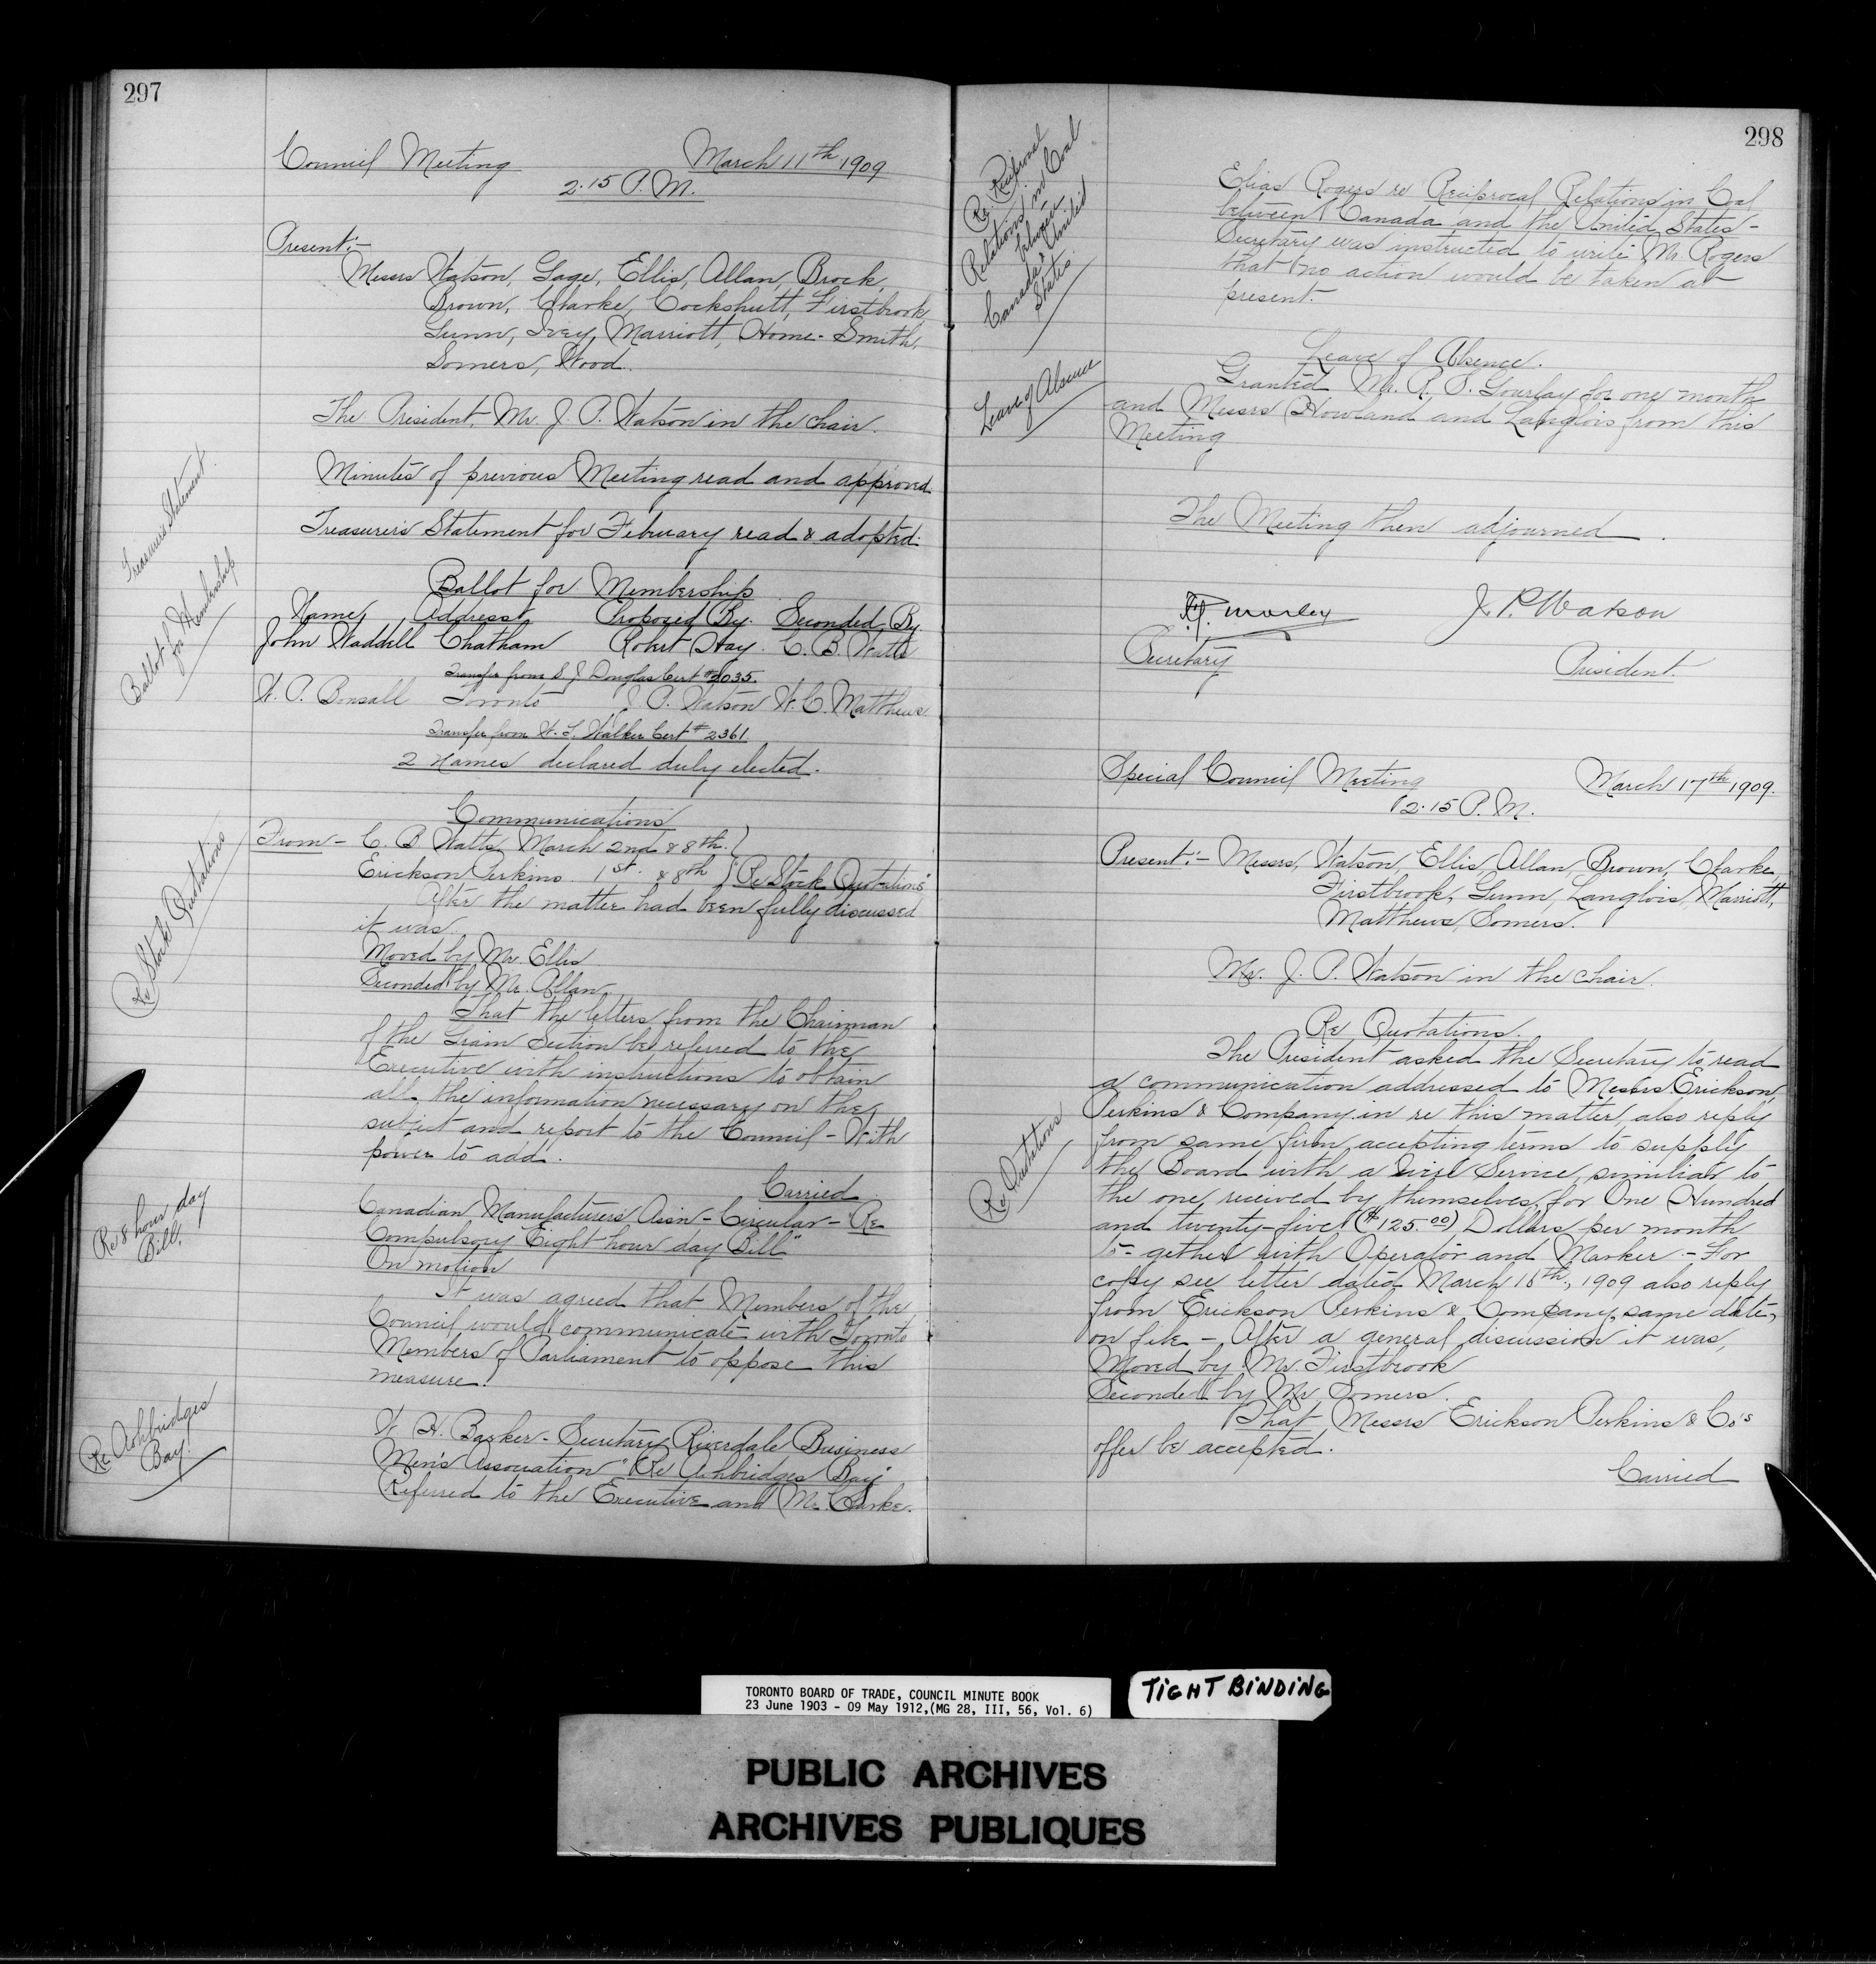 297
Council Meeting March 11th 1909
2.15 P.M.
Present:-
Messrs Watson, Gage, Ellis, Allan, Brock,
Brown, Clarke, Cockshutt, Firstbrook,
Gunn, Ivey, Marriott, Home-Smith,
Somers, Wood.
The President, Mr. J. P. Watson in the chair.
Minutes of previous Meeting read and approved.
Treasurer's Statement.
Treasurer's Statement for February read & adopted.
Ballot for Membership
Ballot for Membership
Name Address Proposed By. Seconded By.
John Waddell Chatham Robert Hay. C. B. Watts
Transfer from S. J. Douglas Cert #2035.
W. P. Bonsall Toronto J. P. Watson W. C. Matthews.
Transfer from W. F. Walker Cert #2361.
2 Names declared duly elected.
Communications
Re Stock Quotations
From - C. B Watts, March 2nd & 8th.
Erickson Perkins 1st. & 8th "Re Stock Quotations"
After the matter had been fully discussed
it was.
Moved by Mr. Ellis
Seconded by Mr. Allan,
That the letters from the Chairman
of the Grain Section be referred to the
Executive with instructions to obtain
all the information necessary on the
subject and report to the Council - With
power to add.
Carried
Re 8 hour day
Bill.
Canadian Manufacturers Assn - Circular - "Re
Compulsory Eight hour day Bill"
On motion
It was agreed that Members of the
Council would communicate with Toronto
Members of Parliament to oppose this
measure.
Re Ashbridges
Bay.
W. H. Barker - Secretary Riverdale Business
Men's Association "Re Ashbridges Bay"
Referred to the Executive and Mr. Clarke.
298
Re. Reciprocal
Relations in Coal
between
Canada & United
States
Elias Rogers re Reciprocal Relations in Coal
between Canada and the United States -
Secretary was instructed to write Mr. Rogers
that no action would be taken at
present.
Leave of Absence
Leave of Absence.
Granted Mr. R. S. Gourlay for one month
and Messrs Howland and Langlois from this
Meeting
The Meeting then adjourned.
Morley J. P. Watson
Secretary President.
Special Council Meeting March 17th 1909.
2.15 P.M.
Present:- Messrs, Watson, Ellis, Allan, Brown, Clarke,
Firstbrook, Gunn, Langlois, Marriott,
Matthews, Somers.
Mr. J. P. Watson in the chair.
Re Quotations
Re Quotations.
The President asked the Secretary to read
a communication addressed to Messrs Erickson,
Perkins & Company in re this matter, also reply
from same firm, accepting terms to supply
the Board with a Wire Service, similiar to
the one, received by themselves, for One Hundred
and twenty-five ($125.00) Dollars per month
to-gether with Operator and Marker - For
copy see letter dated March 16th, 1909 also reply
from Erickson Perkins & Company, same date,
on file - After a general discussion it was,
Moved by Mr. Firstbrook
Seconded by Mr Somers.
That Messrs Erickson Perkins & Co's
offer be accepted.
Carried
TORONTO BOARD OF TRADE, COUNCIL MINUTE BOOK
23 June 1903 - 09 May 1912,(MG 28, III, 56, Vol. 6)
TIGHT BINDING
PUBLIC ARCHIVES
ARCHIVES PUBLIQUES